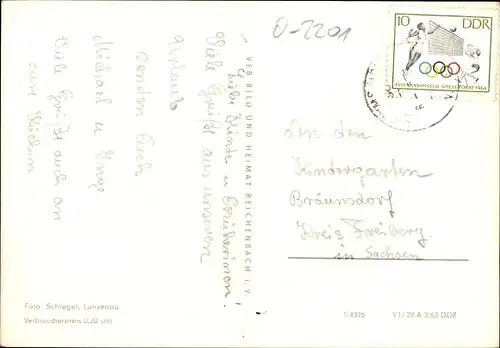 O-2201
10 DDR
XVIII. OLYMPISCHE SPIELE TOKIO 1964
Liebe Kinder u. Erzieherinnen!
Viele Grüße aus unserem
Urlaub
senden Euch
Michael u. Inge
Viele Grüße auch an
eure
VEB BILD UND HEIMAT REICHENBACH i. V.
An den
Kindergarten
Bräunsdorf
Kreis Freiberg
in Sachsen
Foto: Schlegel, Lunzenau
Verbraucherpreis 0,20 DM
1/4376 V 11 28 A 3/63 DDR